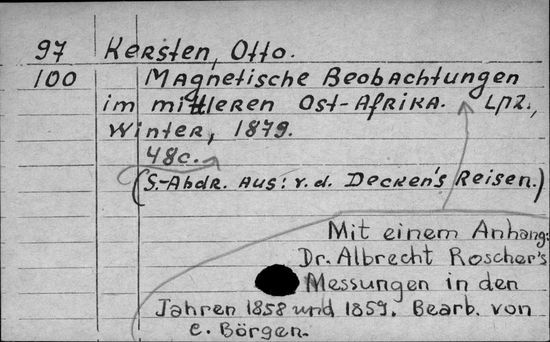 97 Kersten, Otto.
100 Magnetische Beobachtungen
im mittleren Ost-Afrika. Lpz.,
Winter, 1879.
48c.
(S.-Abdr. aus: v. d. Decken's Reisen.)
Mit einem Anhang:
Dr. Albrecht Roscher's
Messungen in den
Jahren 1858 und 1859. Bearb. von
C. Börgen.